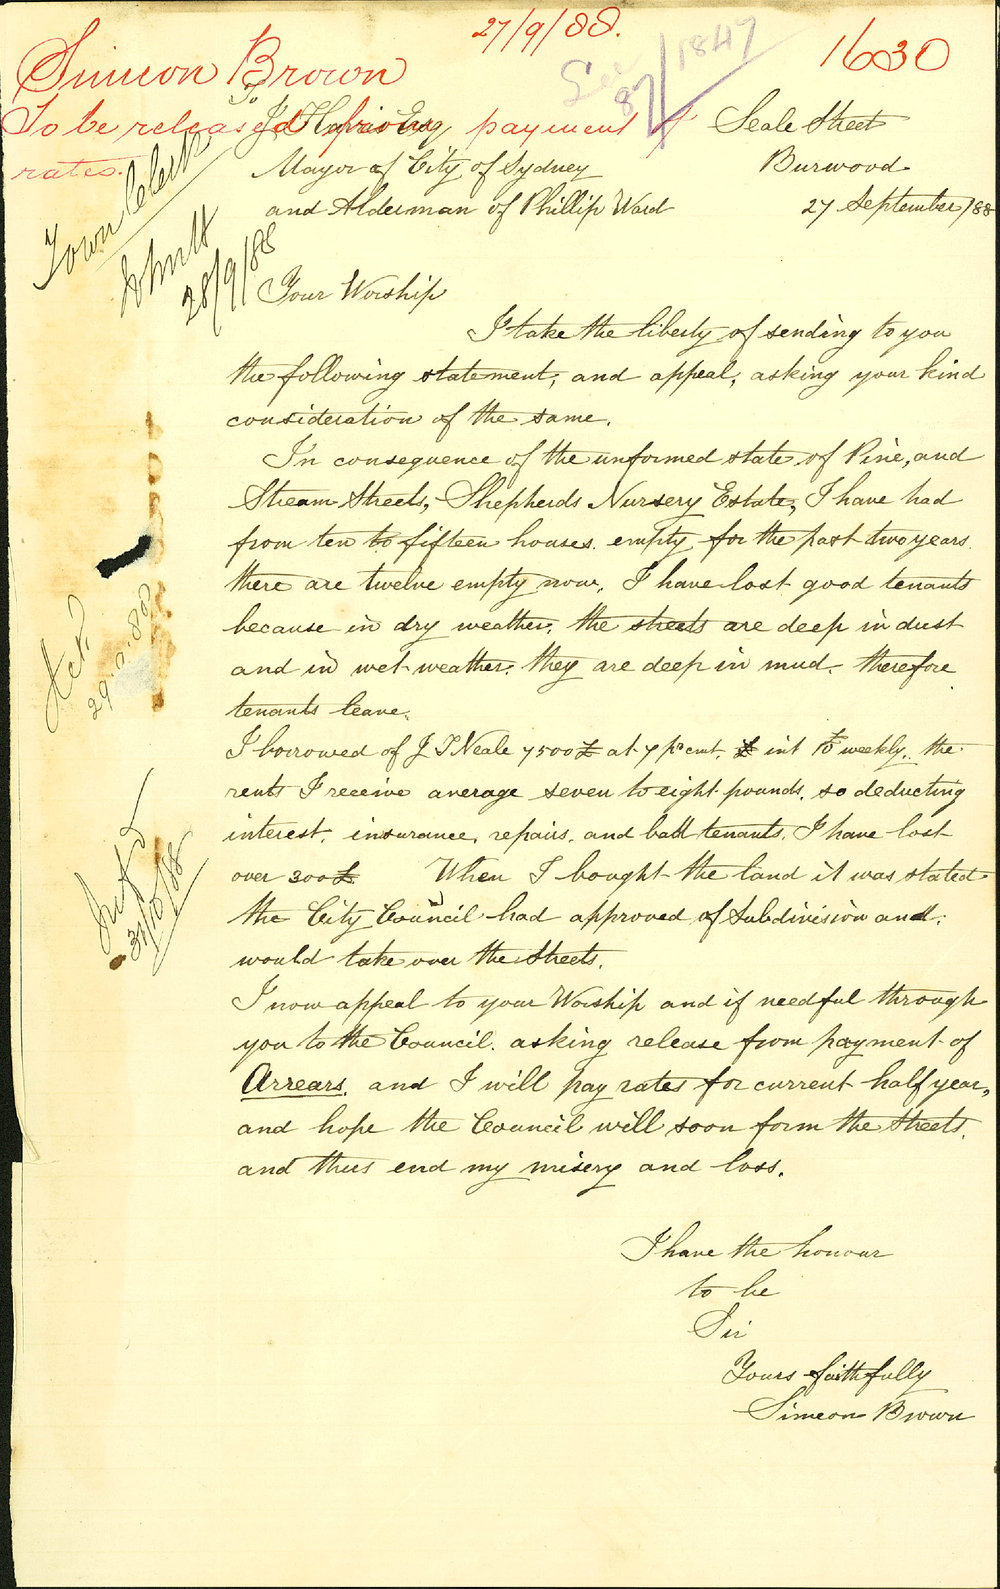 27/9/88.
See 87/1847
1630
Simeon Brown
To be released from payment of
rates.
To
J Harris Esq
Mayor of City of Sydney
and Alderman of Phillip Ward
Seale Street
Burwood
27 September/88
Town Clerk
28/9/88
Your Worship
I take the liberty of sending to you
the following statement, and appeal, asking your kind
consideration of the same.
In consequence of the unformed state of Pine, and
Stream Streets, Shepherds Nursery Estate, I have had
from ten to fifteen houses. empty for the past two years.
there are twelve empty now. I have lost good tenants
because in dry weather, the streets are deep in dust
and in wet weather. they are deep in mud. therefore
tenants leave.
I borrowed of J T Neale 7500£ at 7 pr cent, int £10 weekly. the
rents I receive average seven to eight pounds. so deducting
interest, insurance, repairs, and bad tenants. I have lost
over 300£ When I bought the land it was stated
the City Council had approved of Subdivision and.
would take over the Streets.
I now appeal to your Worship and if needful through
you to the Council. asking release from payment of
Arrears. and I will pay rates for current half year,
and hope the Council will soon form the Streets.
and thus end my misery and loss.
I have the honour
to be
Sir
Yours faithfully
Simeon Brown
29.9.88
31/10/88